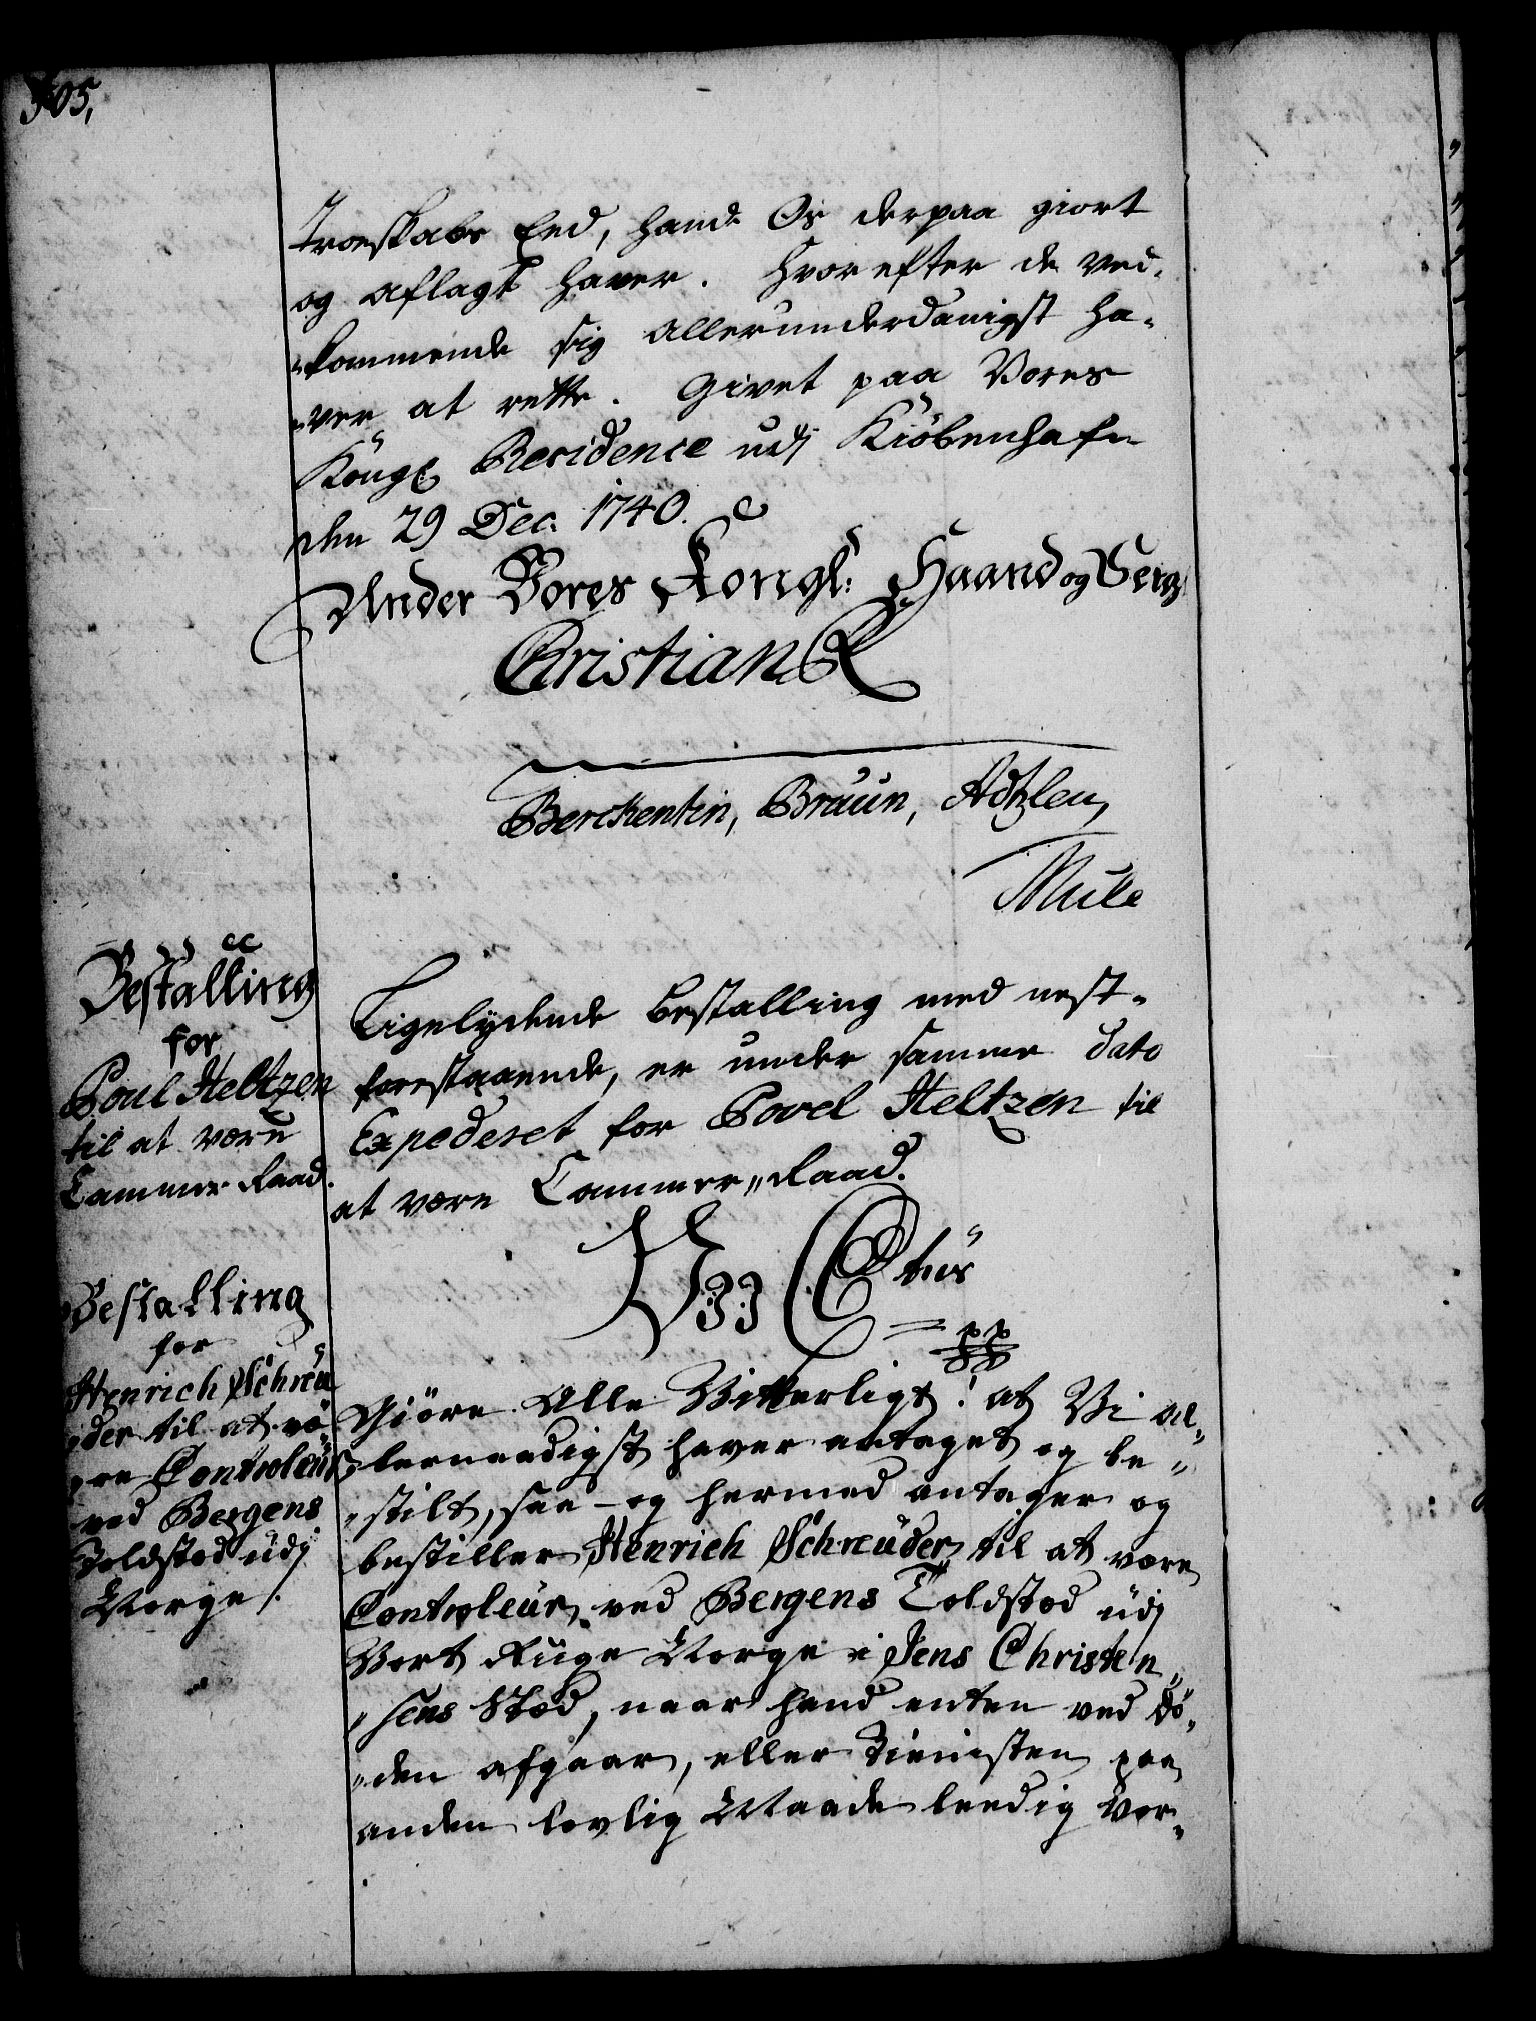 505,
Troeskabs Eed, hand Os derpaa giort
og aflagt haver. Hvorefter de ved-
"kommende sig allerunderdanigst ha-
"ver at rette. Givet paa Vores
Kongl Residence udj Kiöbenhafn
den 29 Dec. 1740.
Under Vores Kongl: Haand og Seigl
Christian R
Berckentin, Braun,
Mule
Bestalling
for
Poul Heltzen
til at være
Cammer Raad.
Ligelydende Bestalling med nest-
forestaaende, er under samme dato
Expederet for Povel Heltzen til
at være Cammer-Raad.
Bestalling
for
Henrich Schreu
"der til at væ-
"re Controleur
ved Bergens
Toldstod udj
Norge.
Vj Ctus
pp
Giöre Alle Vitterligt! at Vi al-
"lernaadigst haver antaget og be-
"stilt, saa - og hermed antager og
bestiller Henrich Schreuder til at være
Controleur ved Bergens Toldstod udj
Vort Rige Norge i Jens Christen-
"sens Stod, naar hand enten ved Dö-
"den afgaar, eller Tienisten paa
anden lovlig Maade leedig vor-